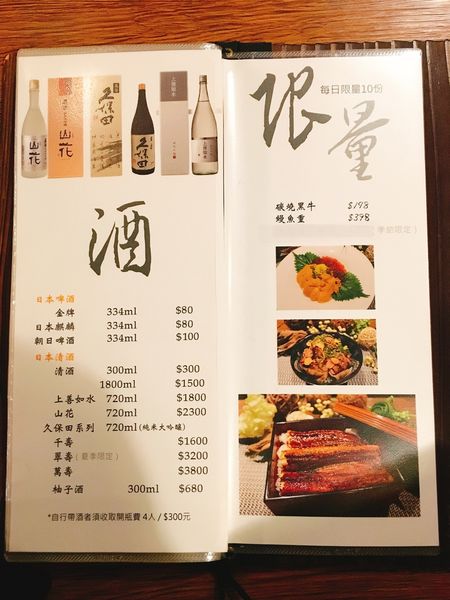 山花
山花
久保田
久保田
上善如水
上善如水
酒
日本啤酒
金牌 334ml $80
日本麒麟 334ml $80
朝日啤酒 334ml $100
日本清酒
清酒 300ml $300
1800ml $1500
上善如水 720ml $1800
山花 720ml $2300
久保田系列 720ml(純米大吟釀)
千壽 $1600
翠壽(夏季限定) $3200
萬壽 $3800
柚子酒 300ml $680
*自行帶酒者須收取開瓶費 4人 / $300元
限量
每日限量10份
碳燒黑牛 $198
鰻魚重 $398
季節限定)